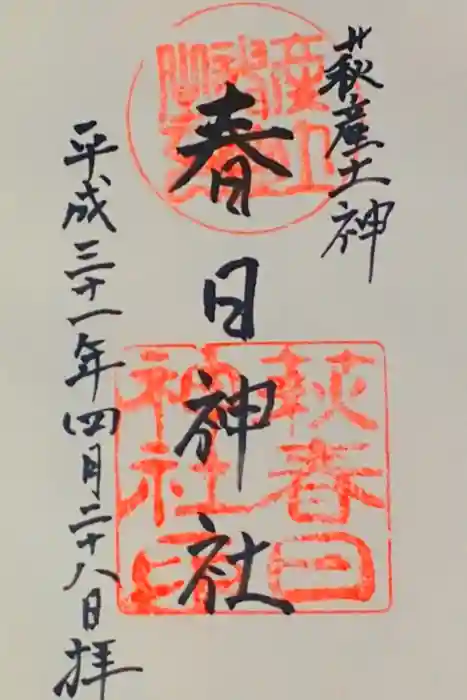 萩産土神
春日神社
平成三十一年四月二十八日拝
萩春日
神社印